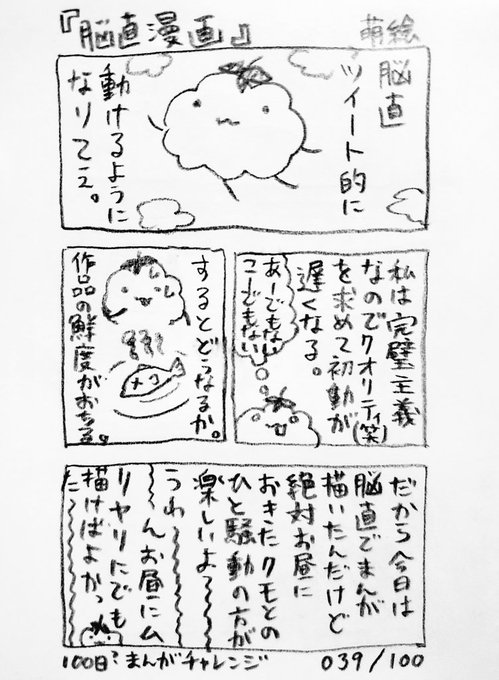 『脳直漫画』
萌絵
脳直
ツイート的に
動けるように
なりてェ。
私は完璧主義
なのでクオリティ(笑)
を求めて初動が
遅くなる。
あーでもない
こーでもない
するとどうなるか。
作品の鮮度がおちる。
だから今日は
脳直でまんが
描いたんだけど
絶対お昼に
おきたクモとの
ひと騒動の方が
楽しいよ〜
うわ〜んお昼にム
リヤリにでも
描けばよかっ
た〜
100日?まんがチャレンジ
039/100